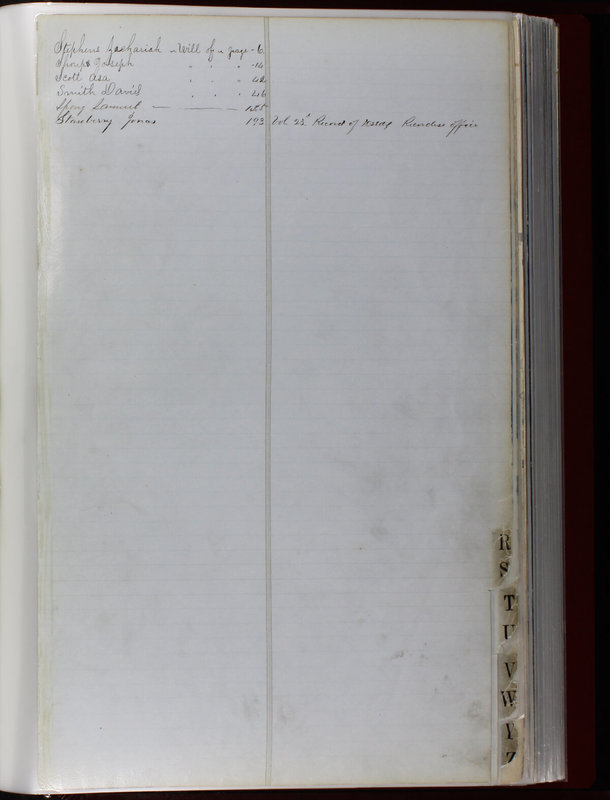 Stephens Zachariah - Will of - page - 6
Joseph " " " -14
Scott Asa " " " 42
Smith David " " " 46
Samuel — ——— 125
Stansberry Jonas 193 Vol 22 Record of Recorders office
R
S
T
U
V
W
Y
Z